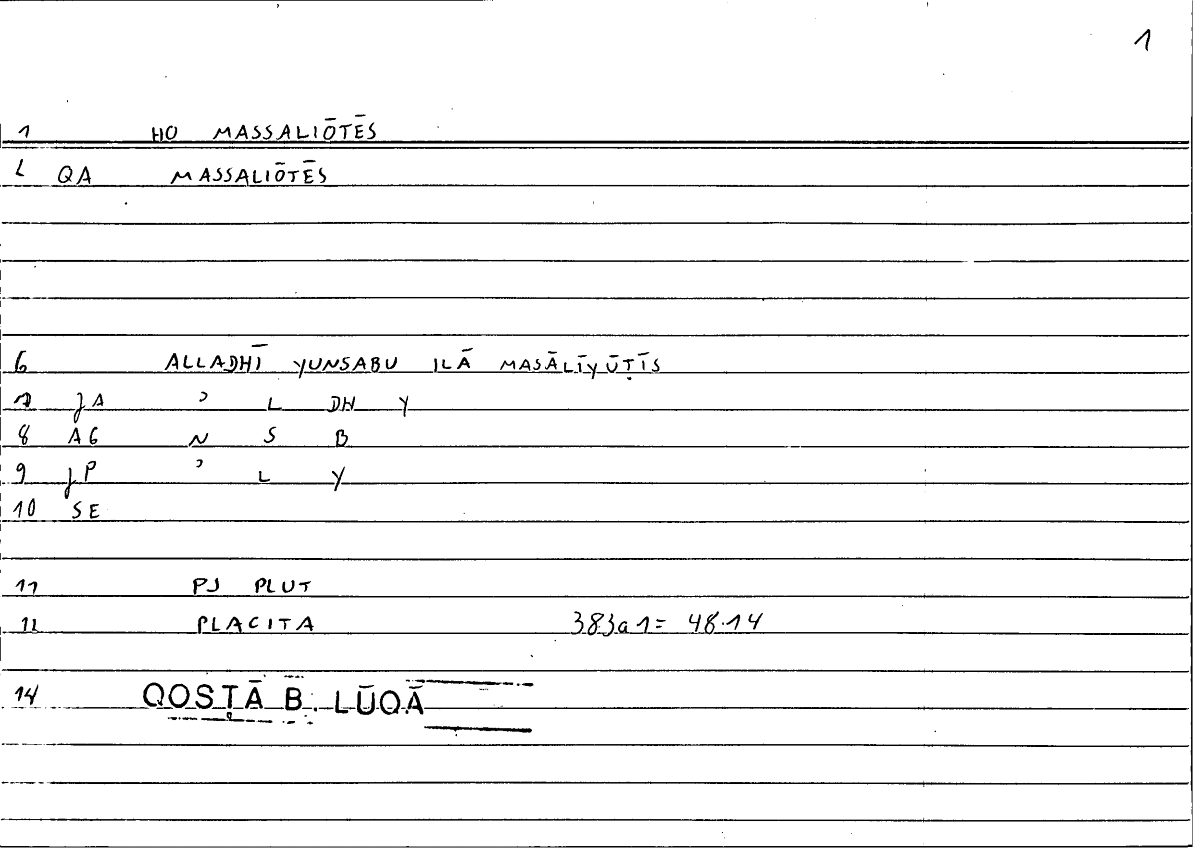 1
1 HO MASSALIŌTĒS
2 QA MASSALIŌTĒS
6 ALLADHĪ YUNSABU ILĀ MASĀLĪYŪṬĪS
7 JA ʾ L DH Y
8 AG N S B
9 JP ʾ L Y
10 SE
11 PJ PLUT
12 PLACITA 383a1= 48.14
14 QOSṬĀ B. LŪQĀ